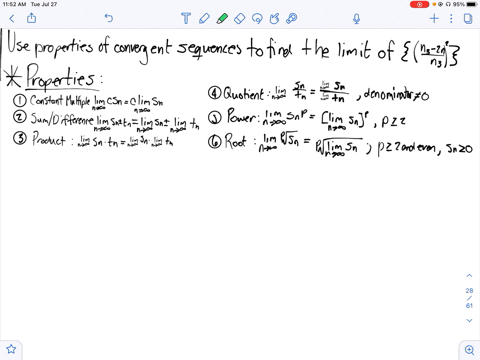 11:52 AM Tue Jul 27
95%
Use properties of convergent sequences to find the limit of {(n³-2n²/n³)}
* Properties:
① Constant Multiple lim n→∞ CSn = C lim n→∞ Sn
② Sum/Difference lim n→∞ Sn ± tn = lim n→∞ Sn ± lim n→∞ tn
③ Product: lim n→∞ Sn · tn = lim n→∞ Sn · lim n→∞ tn
④ Quotient: lim n→∞ Sn/tn = lim n→∞ Sn / lim n→∞ tn, denominator ≠ 0
⑤ Power: lim n→∞ Snᵖ = [lim n→∞ Sn]ᵖ, p≥2
⑥ Root: lim n→∞ ᵖ√Sn = ᵖ√lim n→∞ Sn; p≥2 and even, Sn≥0
28
/
61